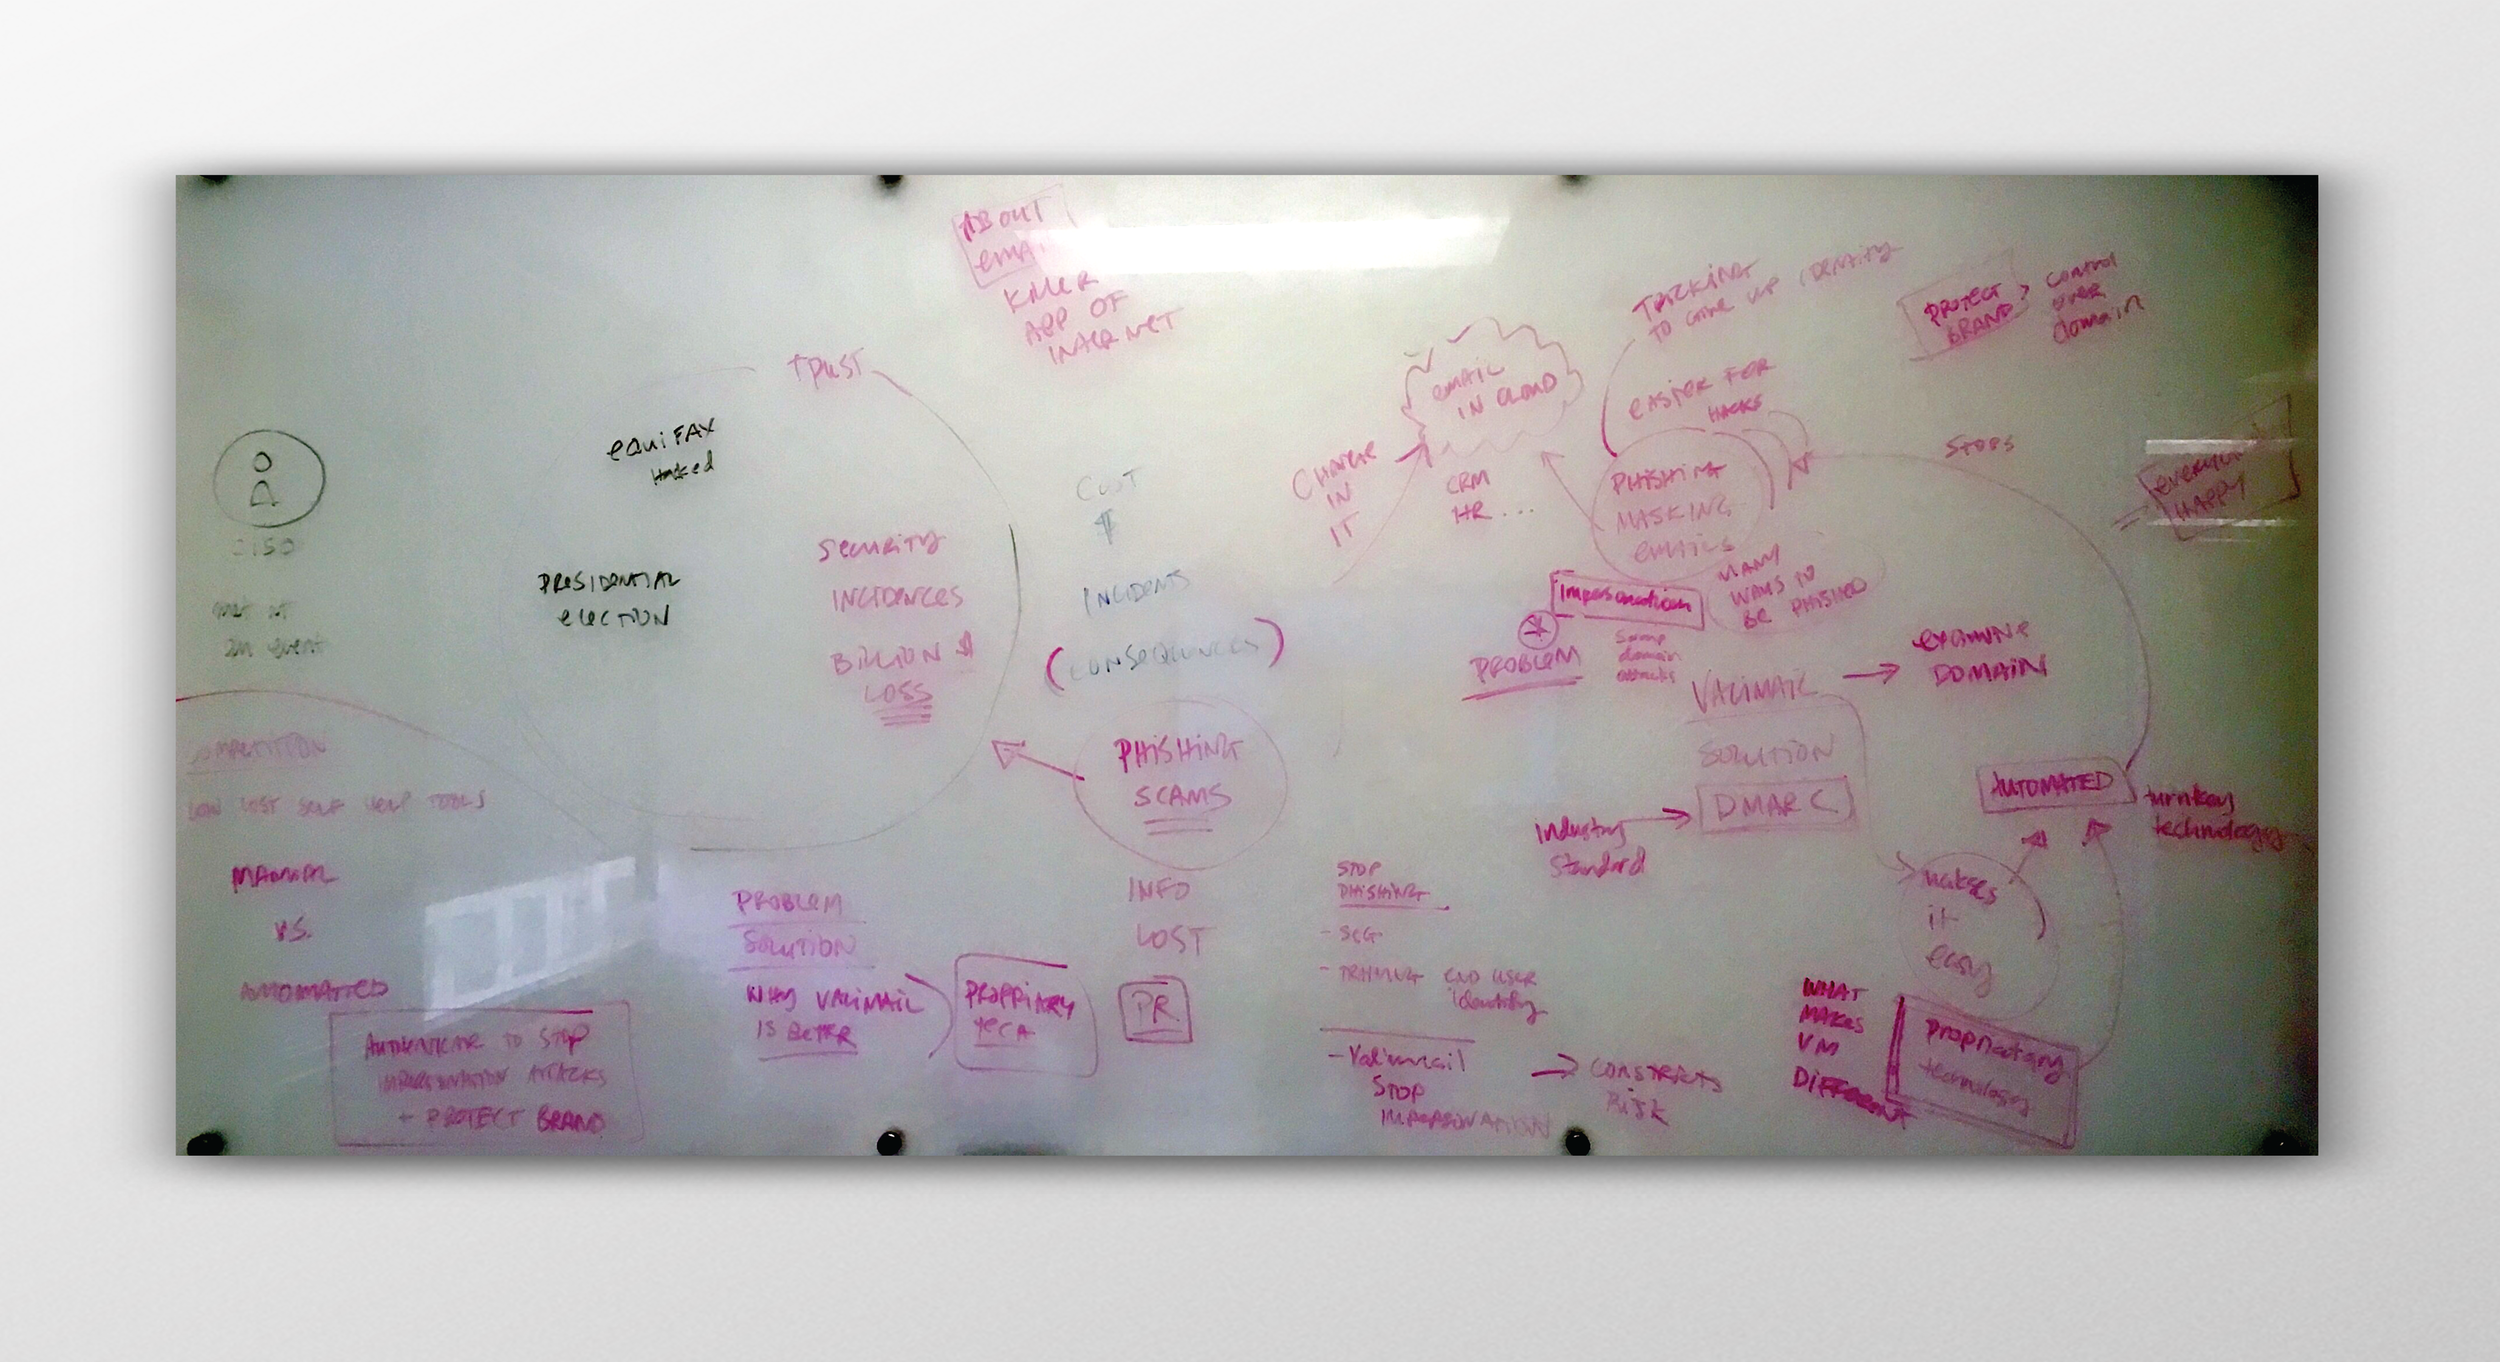 ABOUT
EMAIL
KILLER
APP OF
INTERNET
TRUST
equiFAX
Hacked
PRESIDENTIAL
eleCTION
Security
INCIDENCES
BILLION $
LOSS
COST
INCIDENTS
(CONSEQUENCES)
PHISHING
SCAMS
INFO
LOST
PR
CISO
COMPETITION
LOW COST SELF HELP TOOLS
MANUAL
VS.
AUTOMATTED
AUTHENTICATE TO STOP
IMPERSONATION ATTACKS
+ PROTECT BRAND
PROBLEM
SOLUTION
WHY VALIMAIL
IS BeTTER
CHANGE
IN
IT
EMAIL
IN CLOUD
CRM
HR ...
TO
IDENTITY
EASIER FOR
HACKS
PHISHING
MASKING
EMAILS
MANY
WAYS TO
BE PHISHED
Impersonation
PROBLEM
Same
domain
attacks
PROTECT
BRAND
control
over
domain
STOPS
HAPPY
VALIMAIL
SOLUTION
DMARC
examine
DOMAIN
Industry
Standard
AUTOMATED
turnkey
technology
makes
it
easy
WHAT
MAKES
VM
DIFFERENT
Propriatary
technology
STOP
PHISHING
- SEG
- TRAINING END USER
identify
- Valimail
STOP
IMPERSONATION
Risk